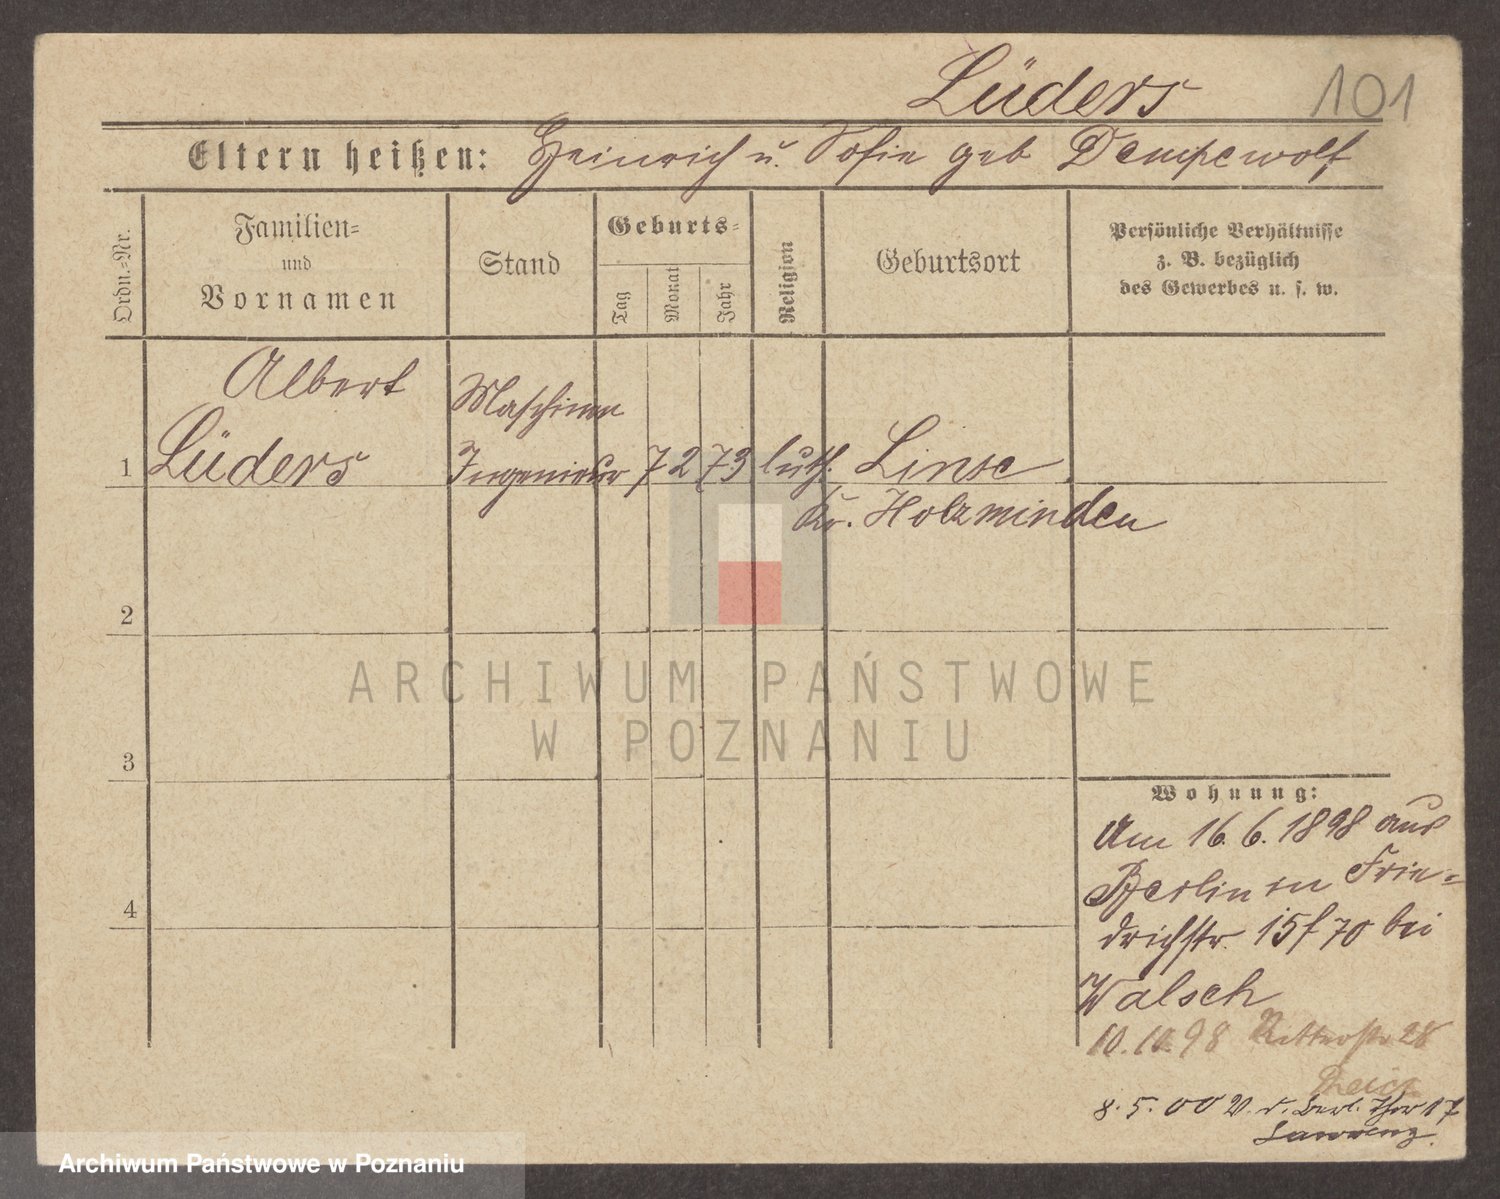 Lüders 101
Eltern heißen: Heinrich u. Sofie geb Dempewolf
Ordn.-Nr.
Familien-
und
Vornamen
Stand
Geburts-
Tag
Monat
Jahr
Religion
Geburtsort
Persönliche Verhältnisse
z. B. bezüglich
des Gewerbes u. s. w.
Albert
Maschinen
1 Lüders Ingenieur 7 2 73 luth. Linse
Kr. Holzminden
2
3
4
Wohnung:
Am 16. 6. 1898 aus
Berlin in Frie-
drichstr. 15 f 70 bei
Walsch
10.10.98 Ritterstr 28
8. 5. 00 V. d. Berl. Thor 17
Lawrenz.
ARCHIWUM PAŃSTWOWE
W POZNANIU
Archiwum Państwowe w Poznaniu